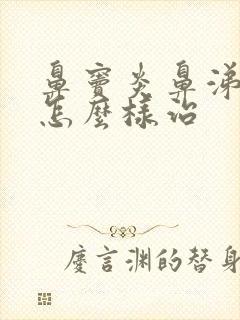 鼻竇炎鼻涕
怎麼樣治
慶言渊的替身